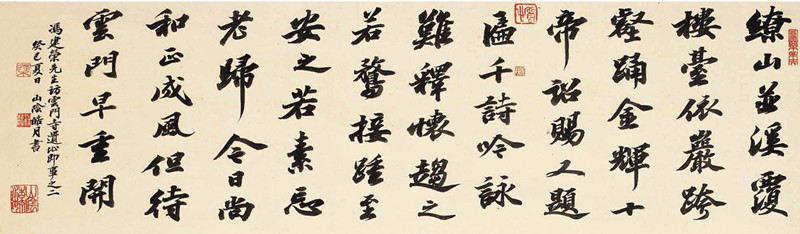 繚山並溪覆
樓臺依巖跨
壑踊金輝十
帝詔賜又題
溘千詩吟詠
難釋懷趨之
若鶩接踵至
安之若素忘
老歸今日尚
和正成風但待
雲門早重開
馮建榮先生訪雲門寺遺址即事之二
癸巳夏日 山陰皓月書